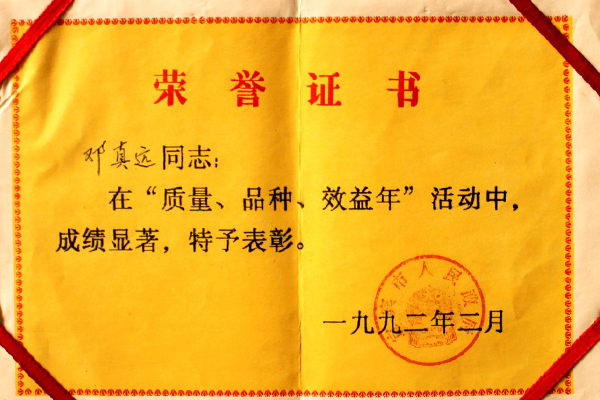 荣誉证书
邓真远同志:
在“质量、品种、效益年”活动中,
成绩显著,特予表彰。
市人民政府
一九九二年二月